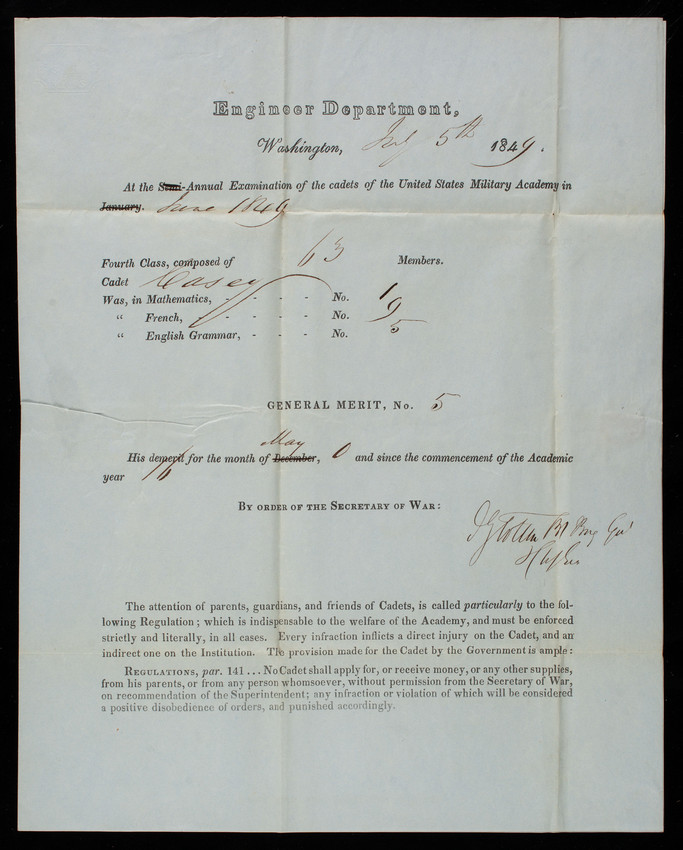 Engineer Department,
Washington, July 5th 1849.
At the Semi-Annual Examination of the cadets of the United States Military Academy in
January. June 1849
Fourth Class, composed of 63 Members.
Cadet Casey
Was, in Mathematics, - - - - No. 1
“ French, - - - - No. 9
“ English Grammar, - - - No. 5
GENERAL MERIT, No. 5
May
His demerit for the month of December, 0 and since the commencement of the Academic
year 16
By order of the Secretary of War:
J G Totten Bt Brig Gen
The attention of parents, guardians, and friends of Cadets, is called particularly to the fol-
lowing Regulation; which is indispensable to the welfare of the Academy, and must be enforced
strictly and literally, in all cases. Every infraction inflicts a direct injury on the Cadet, and an
indirect one on the Institution. The provision made for the Cadet by the Government is ample:
Regulations, par. 141 ... No Cadet shall apply for, or receive money, or any other supplies,
from his parents, or from any person whomsoever, without permission from the Secretary of War,
on recommendation of the Superintendent; any infraction or violation of which will be considered
a positive disobedience of orders, and punished accordingly.